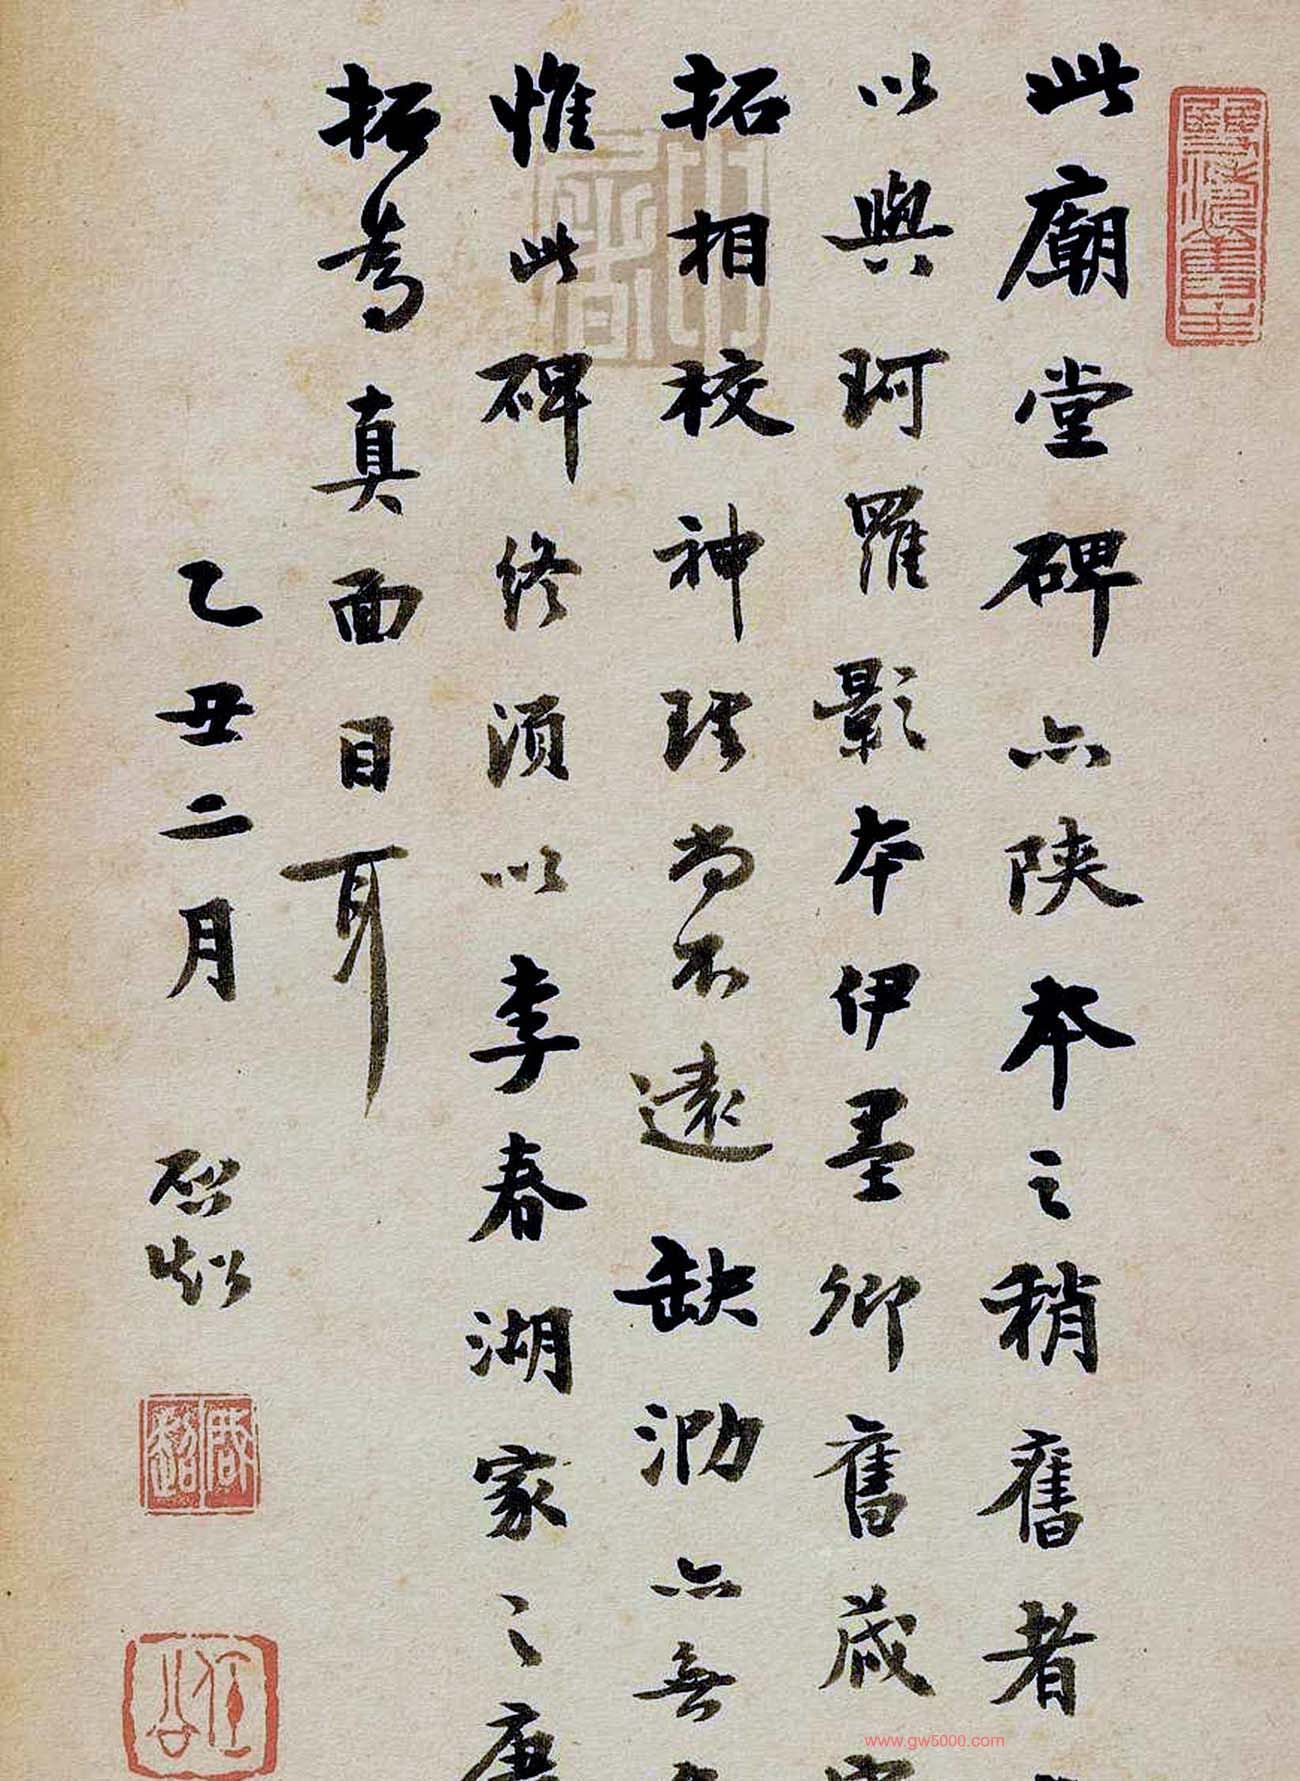 此廟堂碑亦陕本之稍舊者
以與珂羅影本伊墨卿舊藏宋
拓相校神理尚不遠缺泐亦無
惟此碑终須以李春湖家之唐
拓為真面目耳
乙丑二月
启功
www.gw5000.com